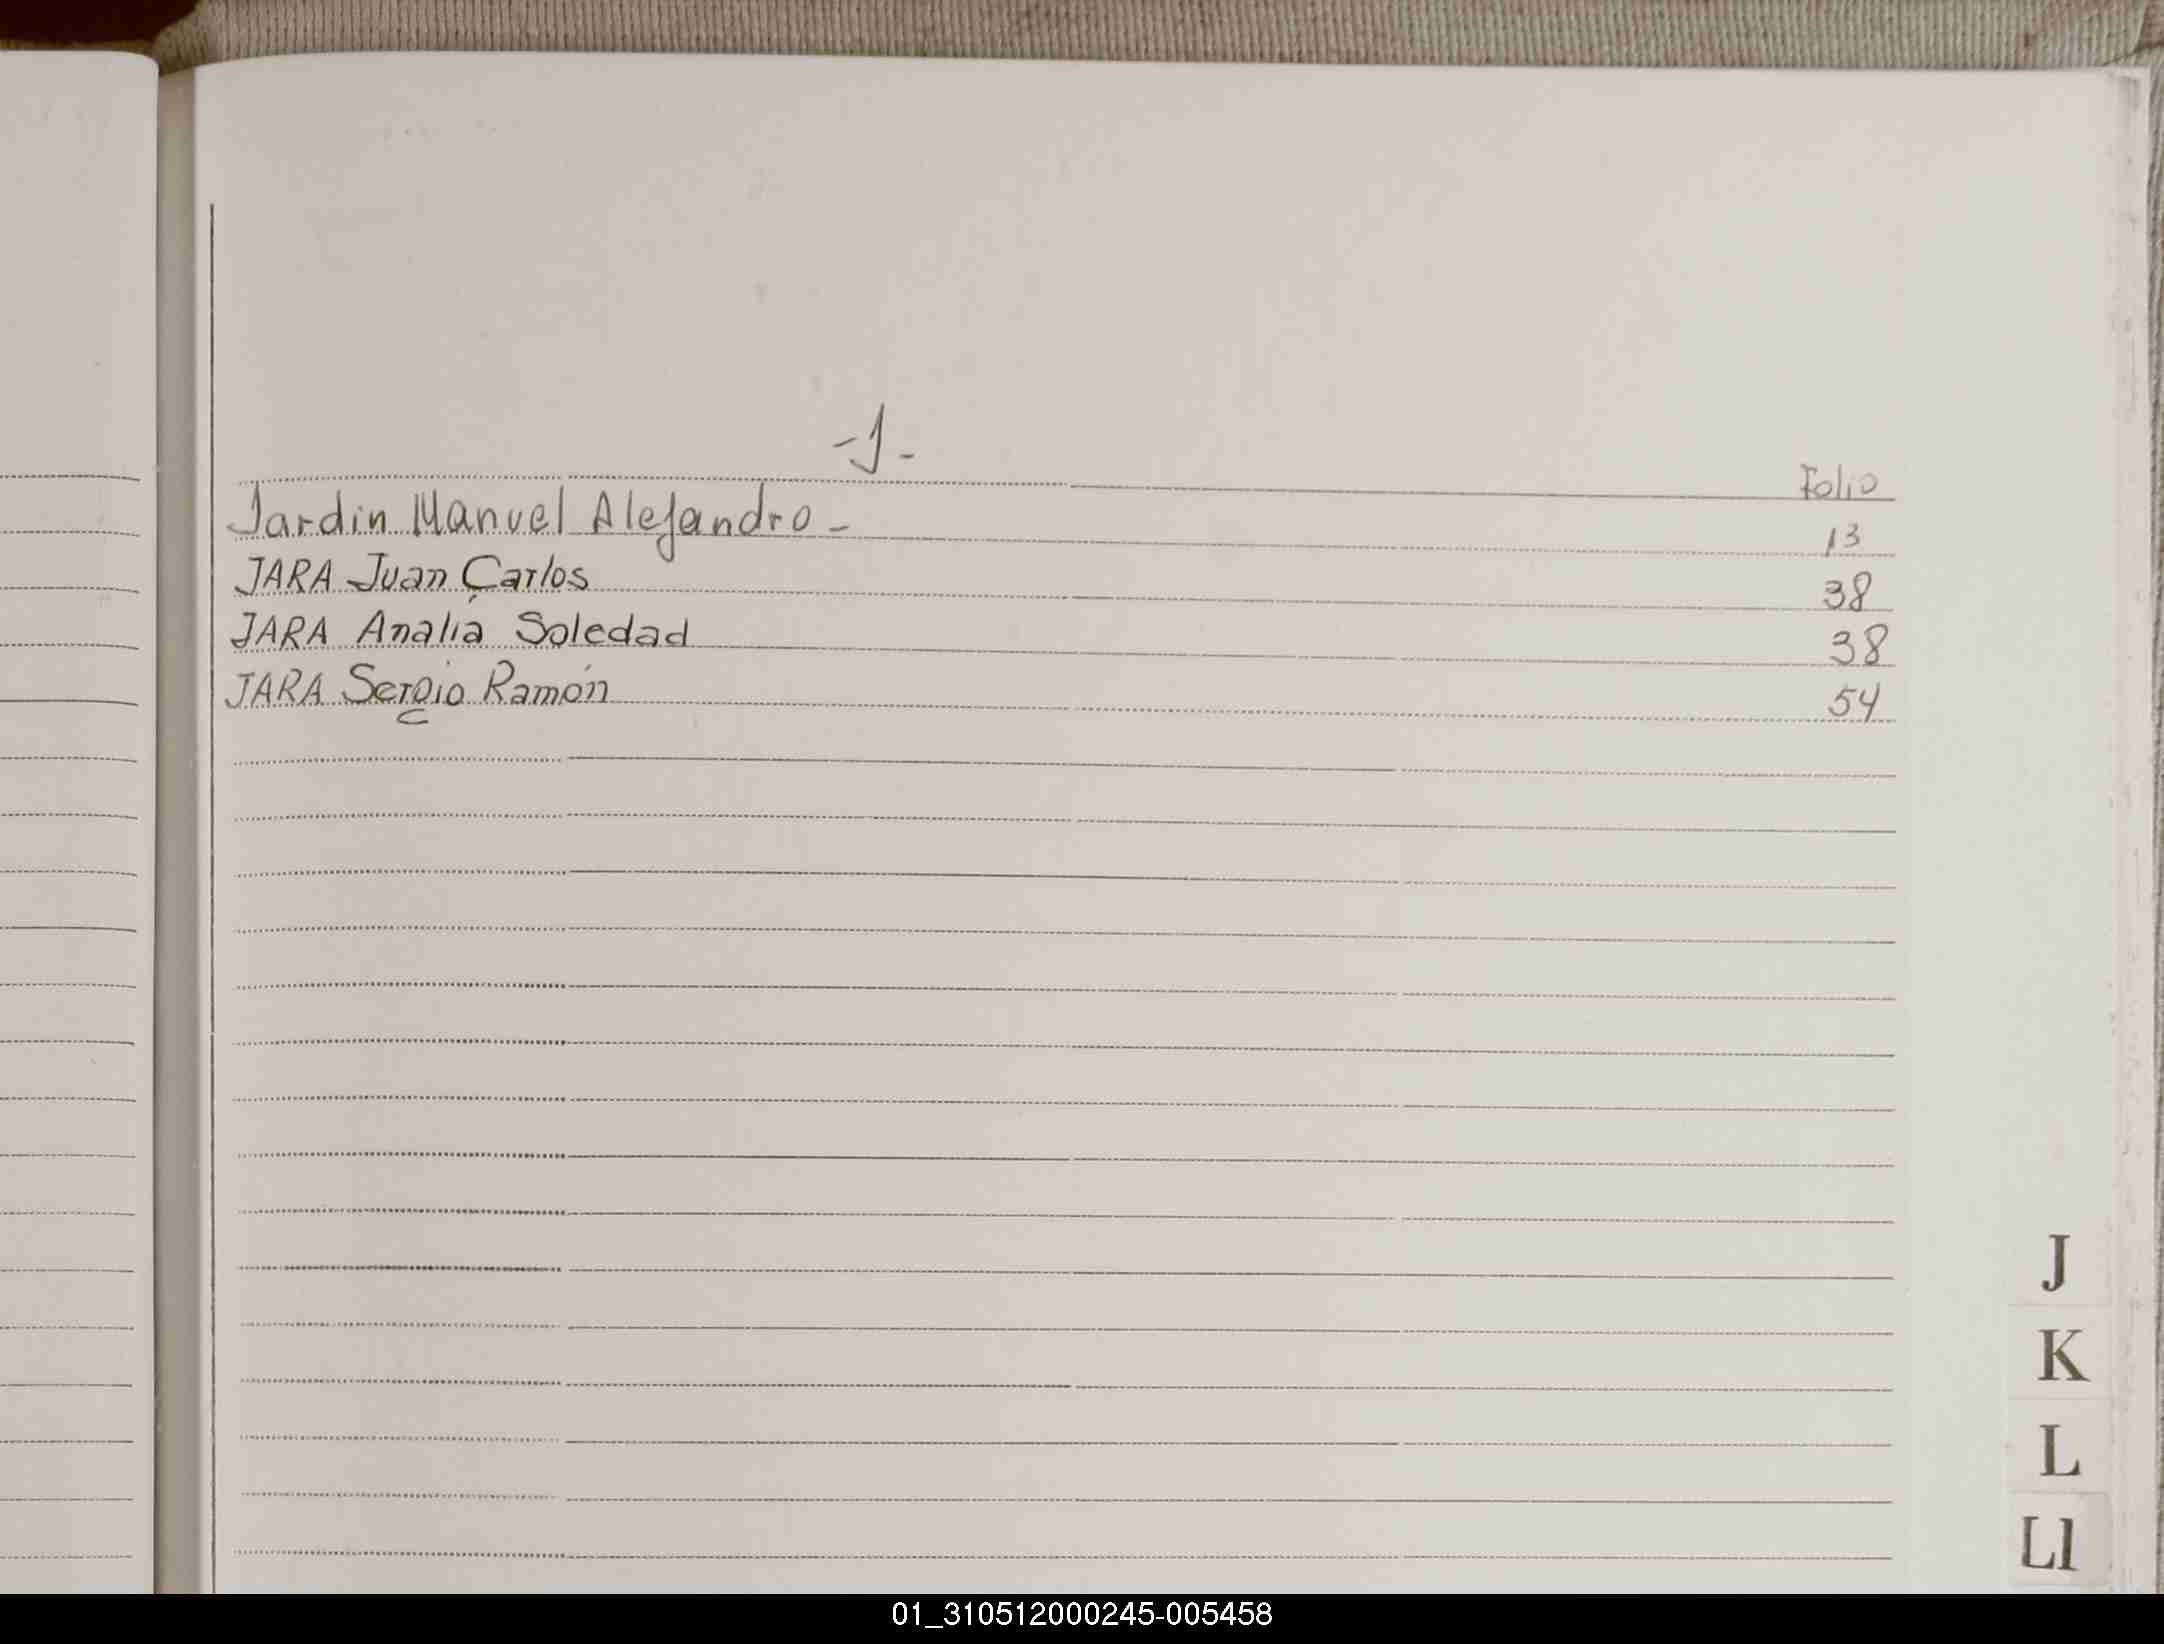 -J-
Folio
Jardin Manuel Alejandro - 13
JARA Juan Carlos 38
JARA Analía Soledad 38
JARA Sergio Ramón 54
J
K
L
Ll
01_310512000245-005458